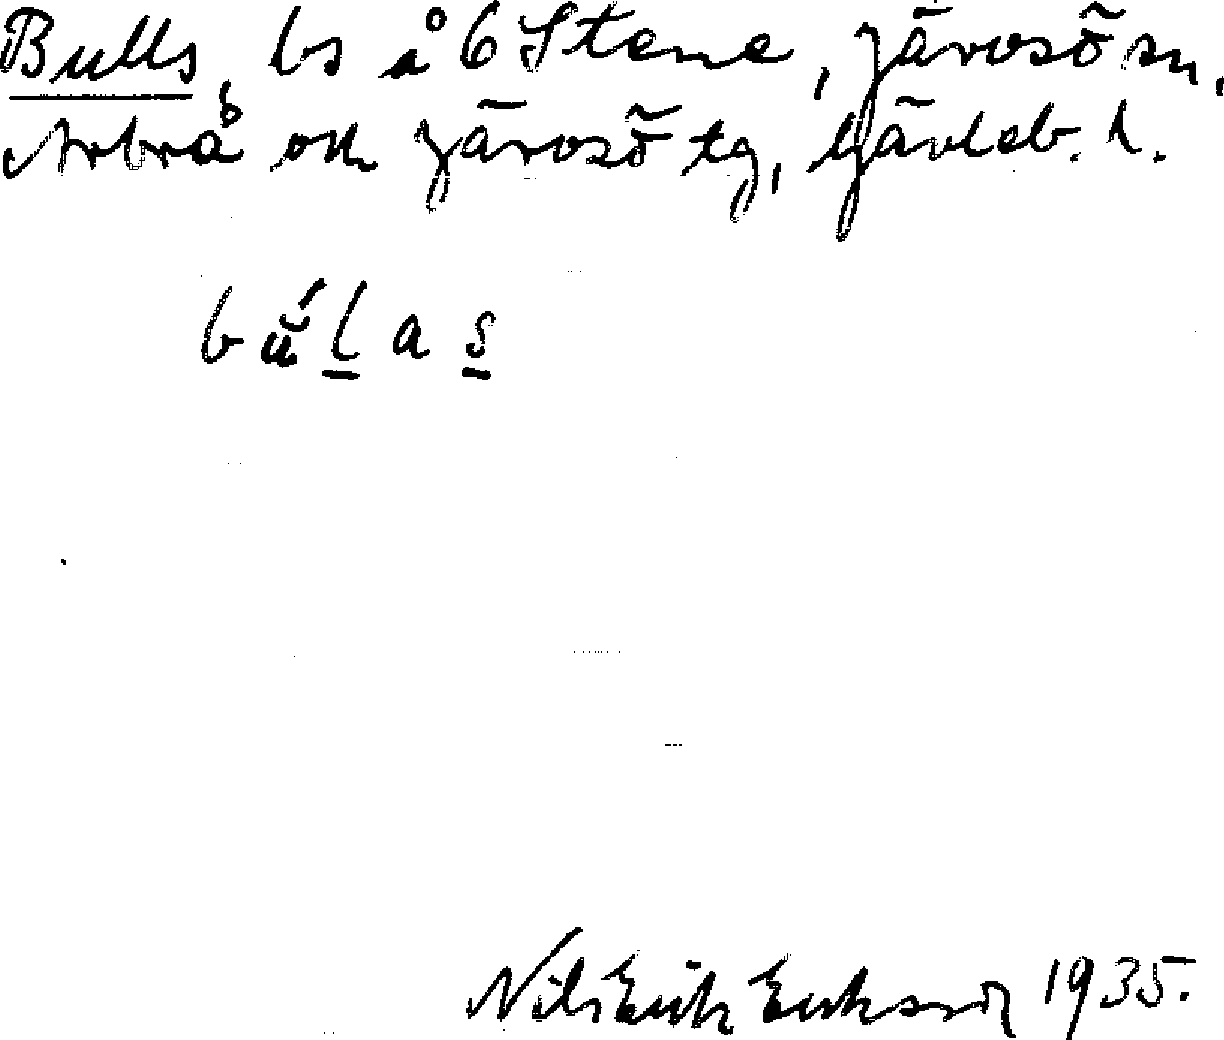 Bulls, bs å 6 Stene, Järvsö sn,
Arbrå och Järvsö tg, Gävleb. l.
bŭ́l̲as̲
Nils Erik Eriksson 1935.